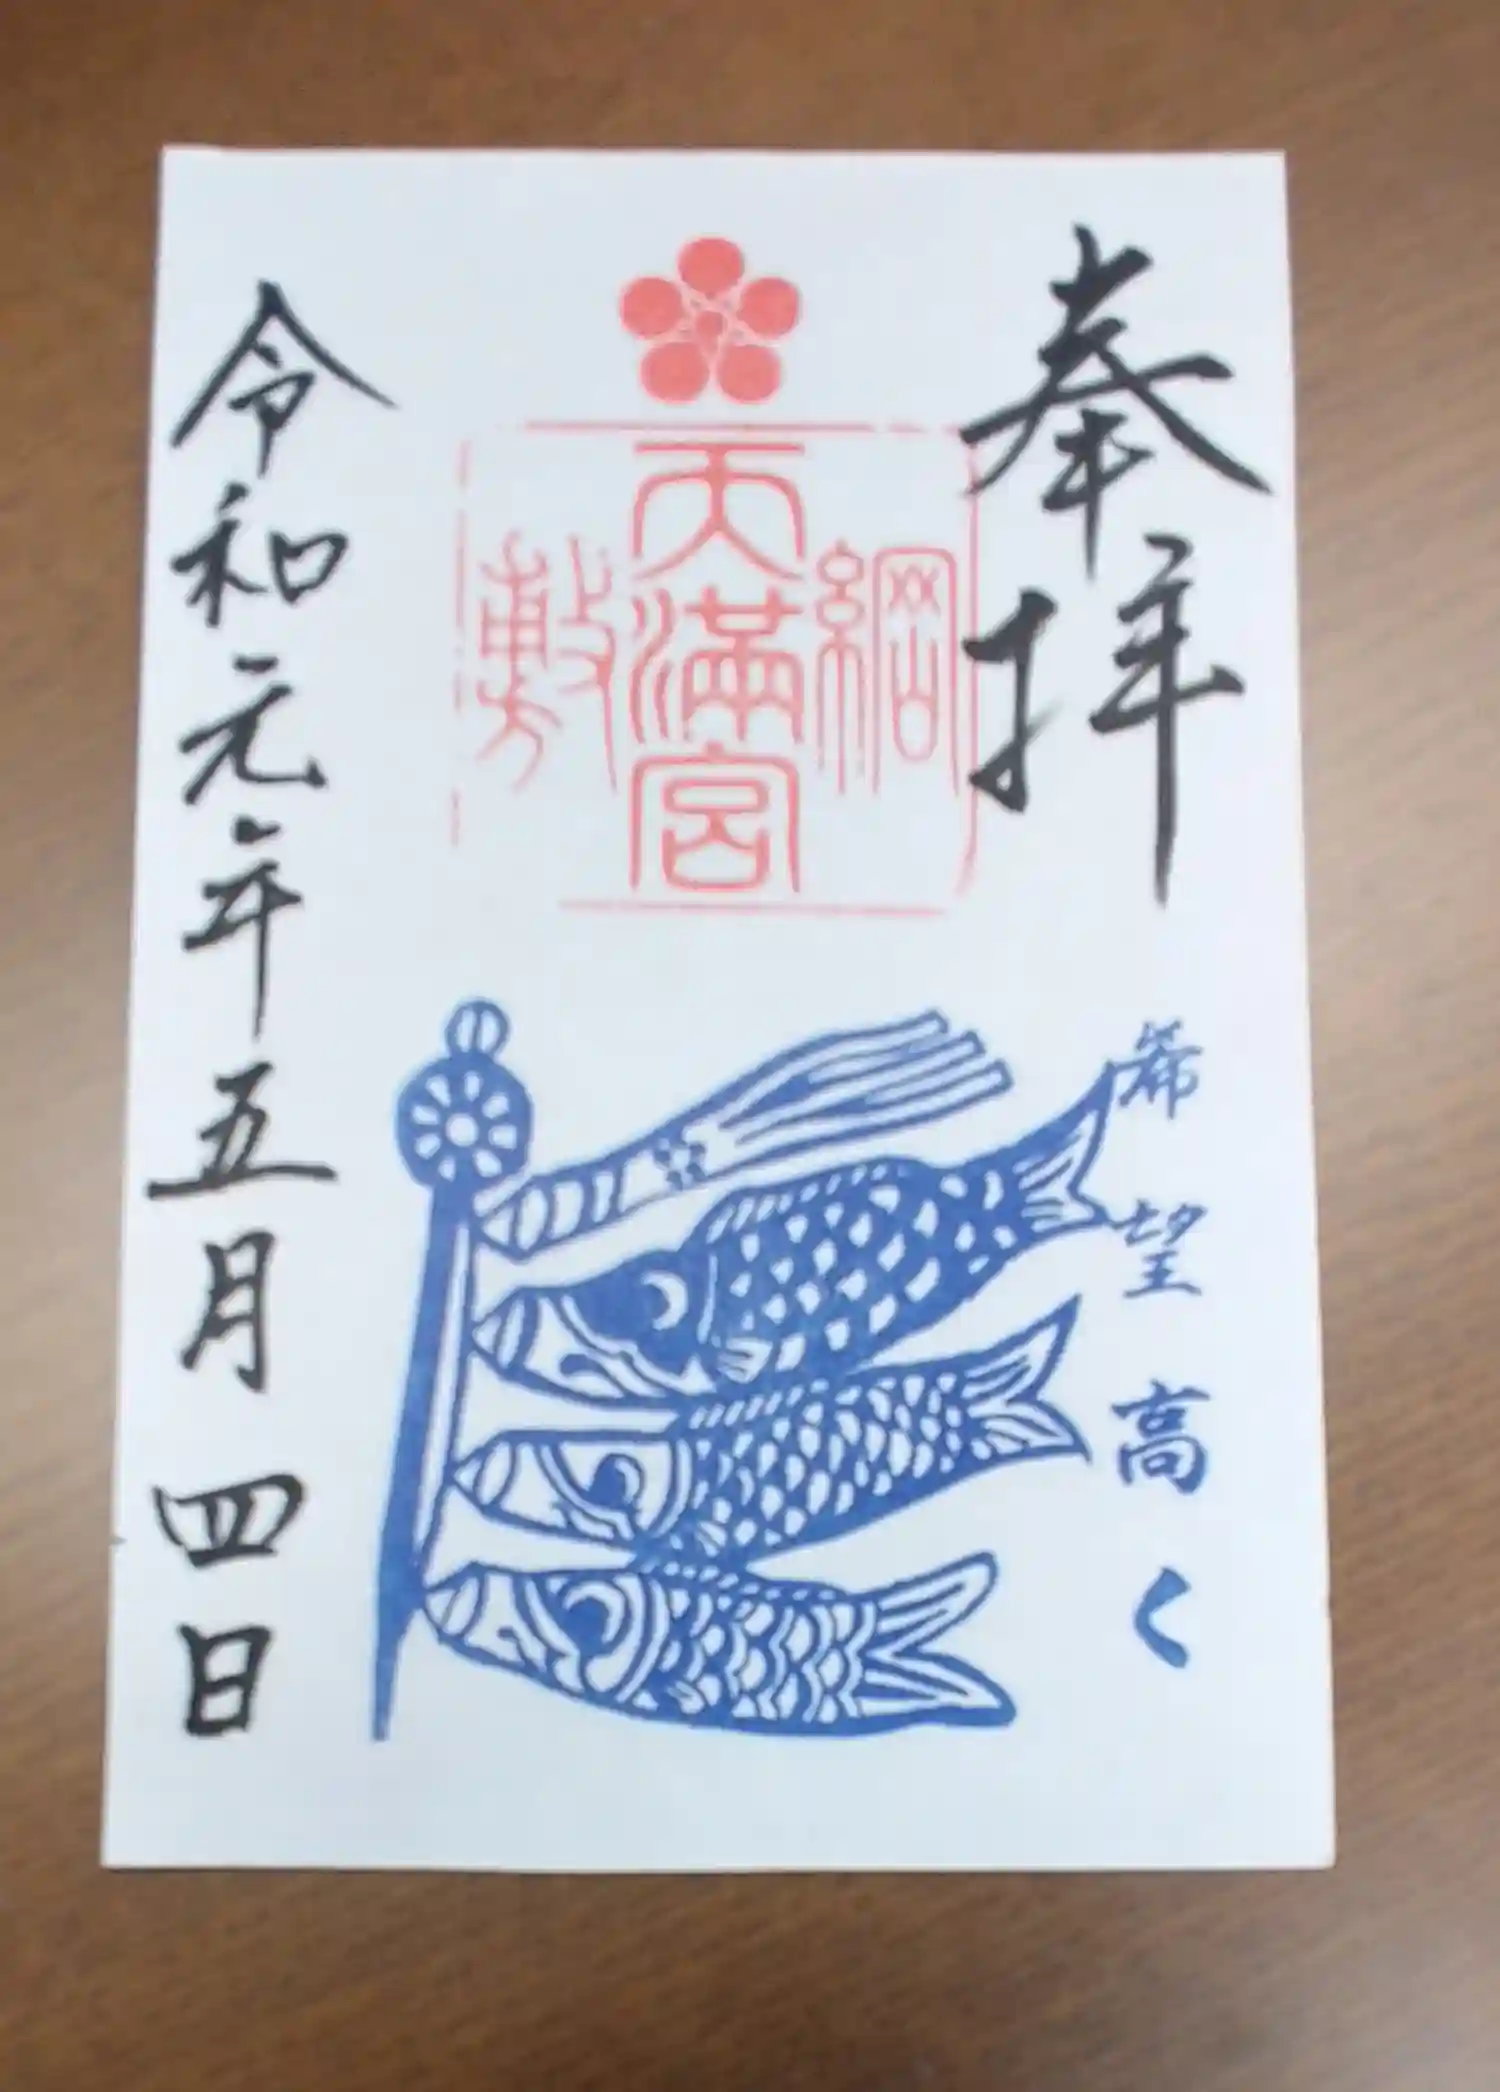 奉拝
希望高く
綱敷
天満宮
令和元年五月四日